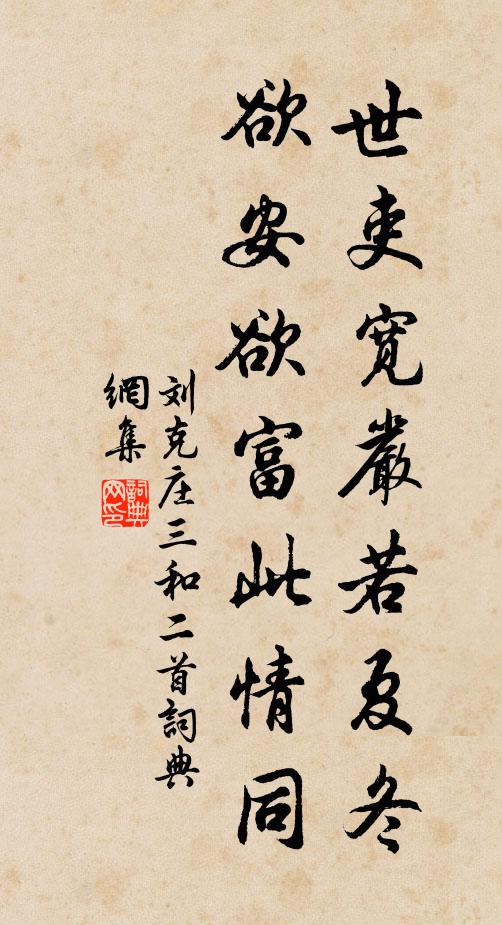 世吏寬嚴若夏冬
欲安欲富此情同
刘克庄三和二首詞典
網集
詞典
网印